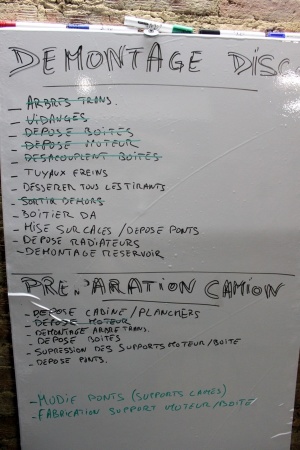 DEMONTAGE DISC
- ARBRES TRANS.
- VIDANGES
- DEPOSE BOITES
- DEPOSE MOTEUR
- DESACOUPLENT BOITES
- TUYAUX FREINS
- DESSERER TOUS LES TIRANTS
- SORTIR DEHORS
- BOITIER DA
- MISE SUR CALES / DEPOSE PONTS
- DEPOSE RADIATEURS
- DEMONTAGE RESERVOIR
PREPARATION CAMION
- DEPOSE CABINE / PLANCHERS
- DEPOSE MOTEUR
- DEMONTAGE ARBRE TRANS.
- DEPOSE BOITES
- SUPRESSION DES SUPPORTS MOTEUR / BOITE
- DEPOSE PONTS.
- MODIF PONTS (SUPPORTS LAMES)
- FABRICATION SUPPORT MOTEUR / BOITE